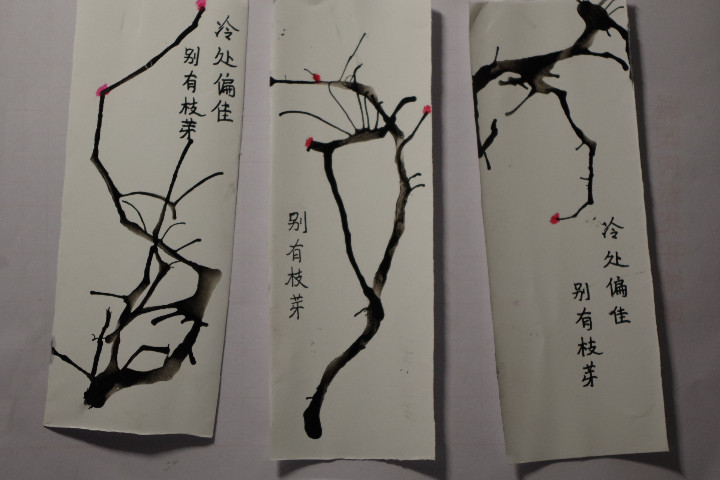 冷处偏佳
别有枝芽
别有枝芽
冷处偏佳
别有枝芽